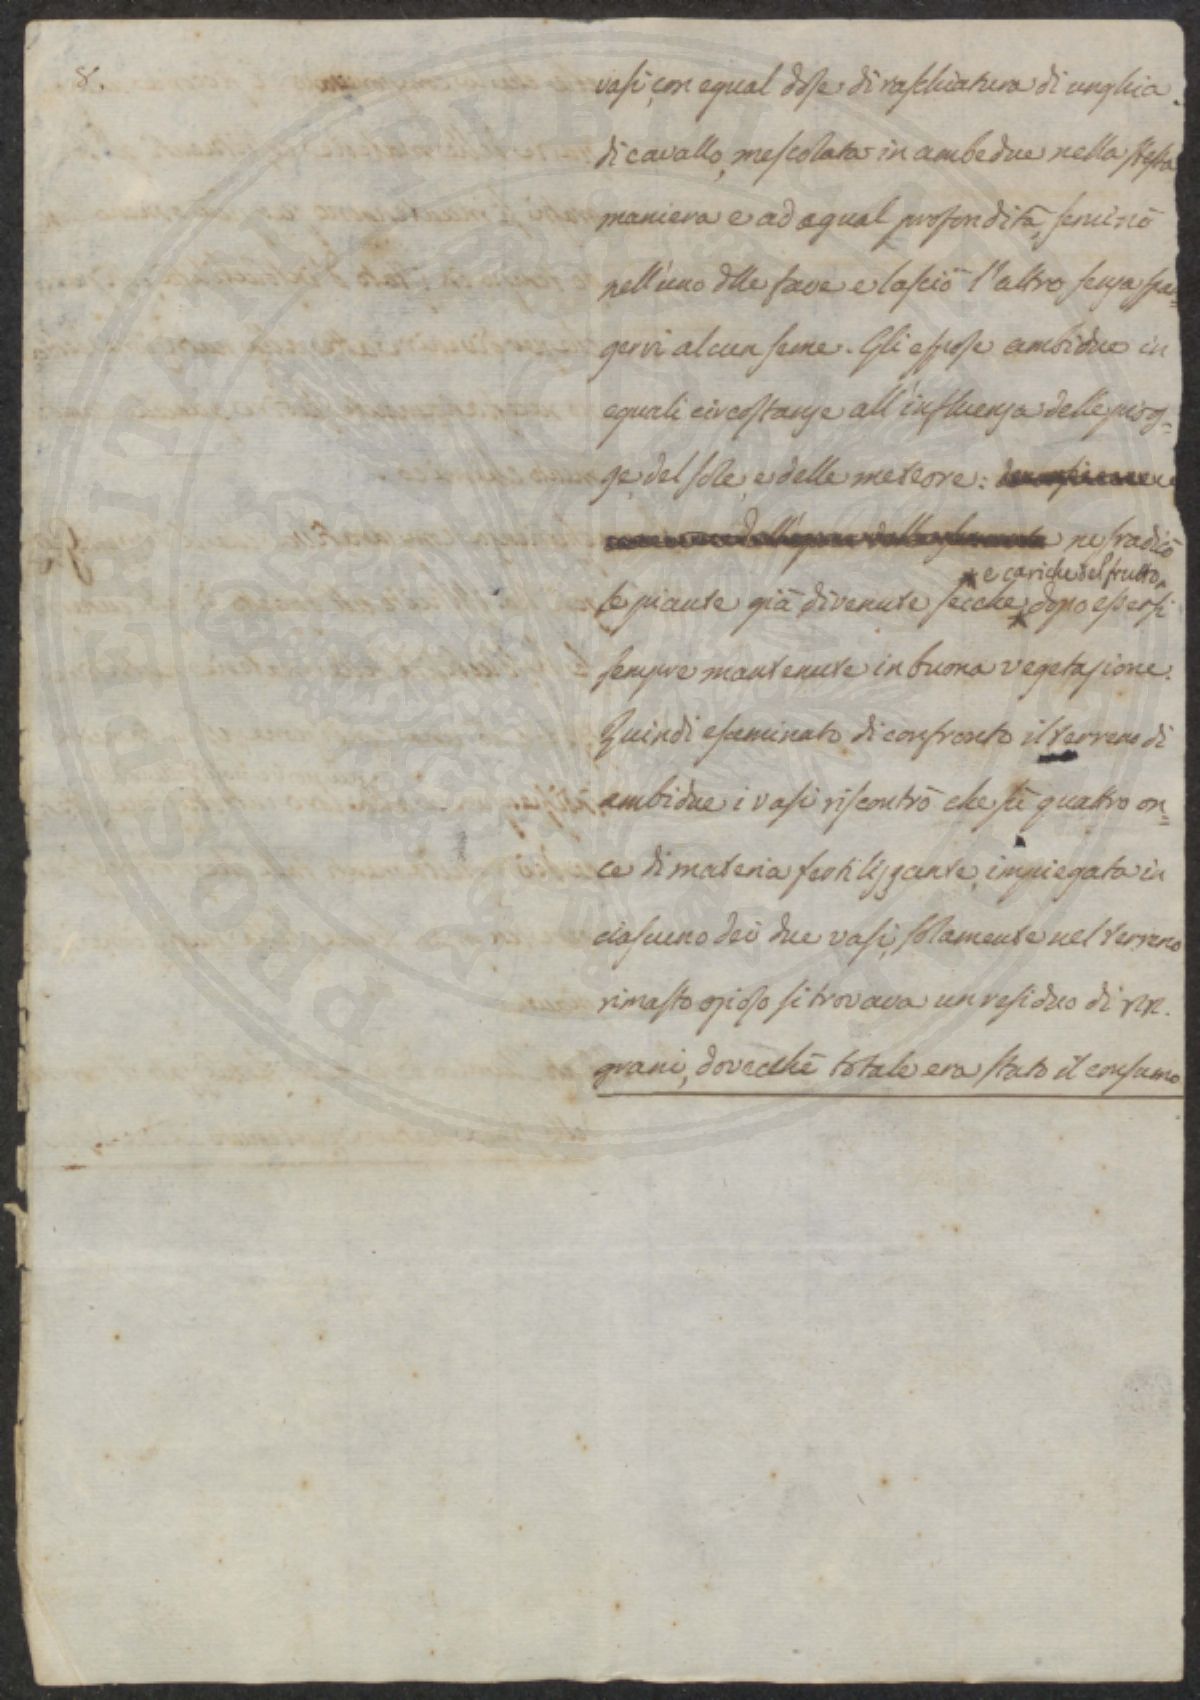 8.
vasi, con equal dose di raschiatura di unghia
di cavallo, mescolata in ambedue nella stessa
maniera e ad equal profondità, seminò
nell'uno delle fave e lasciò l'altro senza spar-
gervi alcun seme. Gli espose ambidue in
equali circostanze all'influenza delle piog-
ge, del sole, e delle meteore:
ne sradicò
e cariche del frutto,
le piante già divenute secche dopo essersi
sempre mantenute in buona vegetazione.
Quindi esaminato di confronto il terreno di
ambidue i vasi riscontrò che sù quattro on-
ce di materia fertilizzante, impiegata in
ciascuno dei due vasi, solamente nel terreno
rimasto ozioso si trovava un residuo di
grani, dovecchè totale era stato il consumo